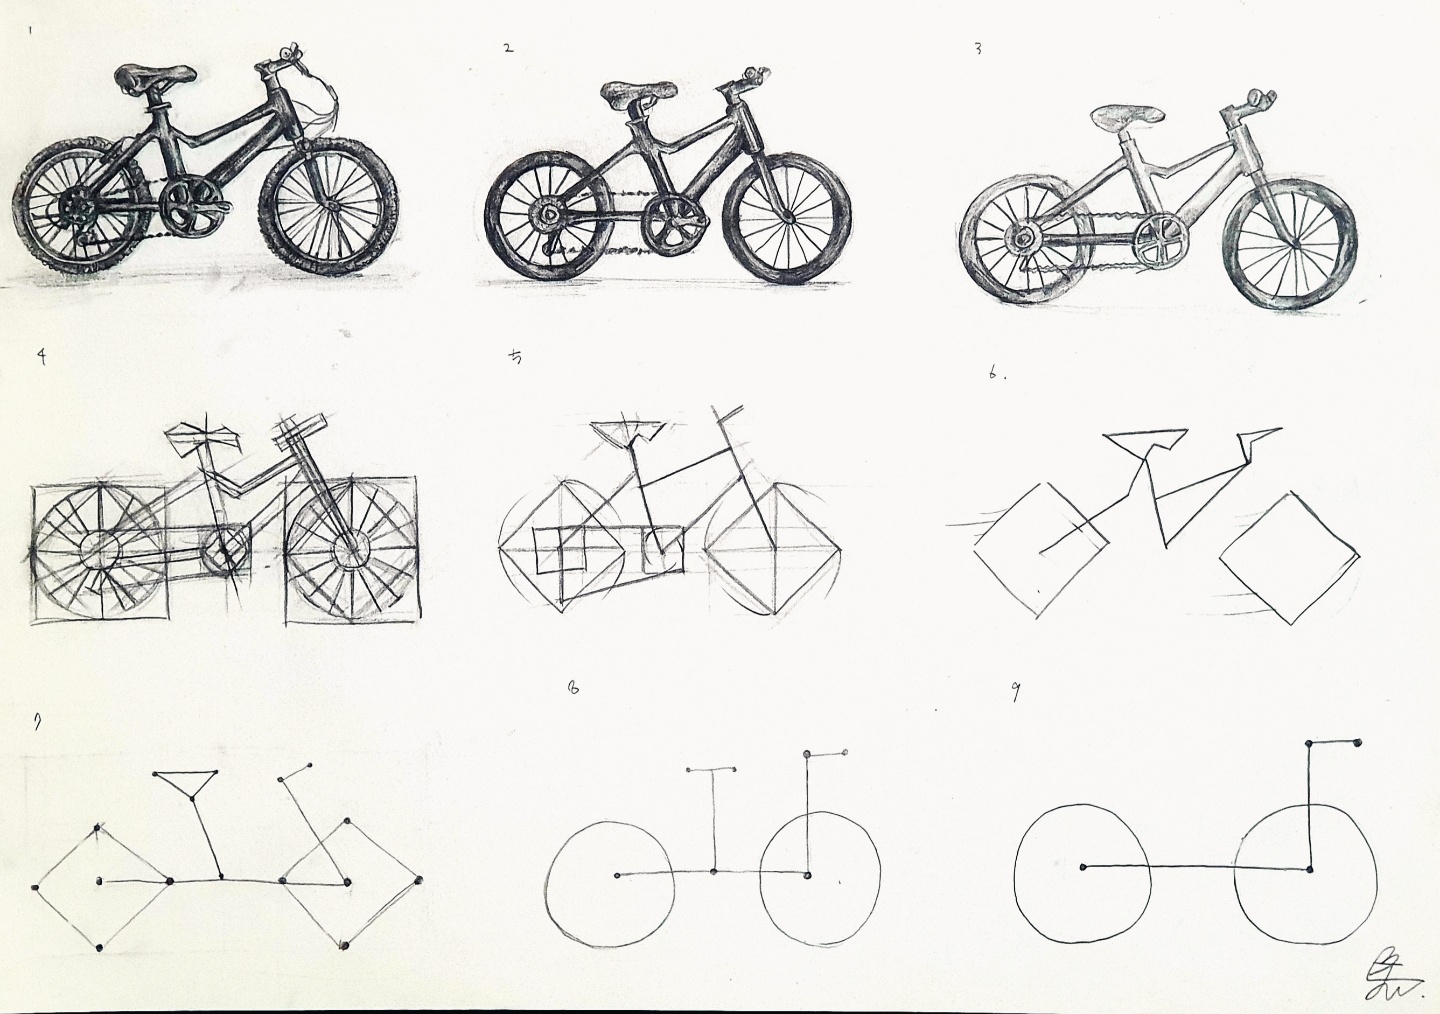 1
2
3
4
5
6.
7
8
9